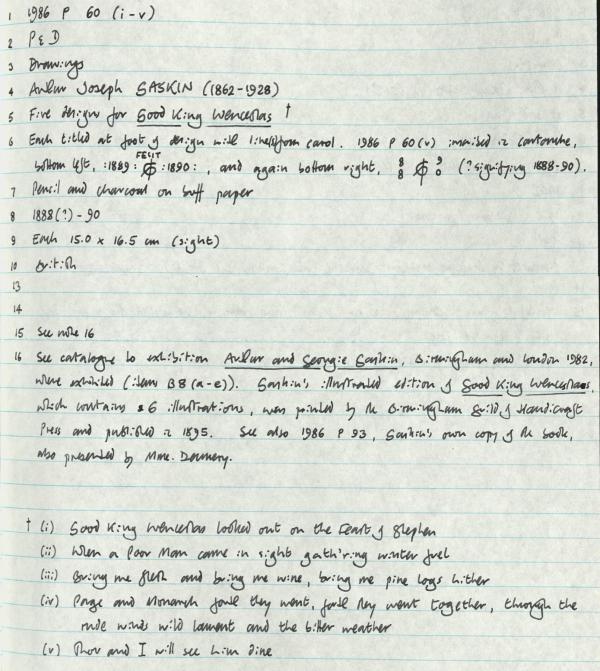 1 1986 P 60 (i-v)
2 P & D
3 Drawings
4 Arthur Joseph GASKIN (1862-1928)
5 Five designs for Good King Wenceslas †
6 Each titled at foot of design with line(s) from carol. 1986 P 60(v) inscribed in cartouche,
bottom left, :1889: FECIT :1890:, and again bottom right, 8 8 9 0 (? signifying 1888-90).
7 Pencil and charcoal on buff paper
8 1888(?)-90
9 Each 15.0 x 16.5 cm (sight)
10 British
13
14
15 See note 16
16 See catalogue to exhibition Arthur and Georgie Gaskin, Birmingham and London 1982,
where exhibited (items B8 (a-e)). Gaskin's illustrated edition of Good King Wenceslas,
which contains 6 illustrations, was printed by the Birmingham Guild of Handicraft
Press and published in 1895. See also 1986 P 93, Gaskin's own copy of the book,
also presented by Mme.
† (i) Good King Wenceslas looked out on the Feast of Stephen
(ii) When a Poor Man came in sight gath'ring winter fuel
(iii) Bring me flesh and bring me wine, bring me pine logs hither
(iv) Page and Monarch forth they went, forth they went together, through the
rude winds wild lament and the bitter weather
(v) Thou and I will see him dine